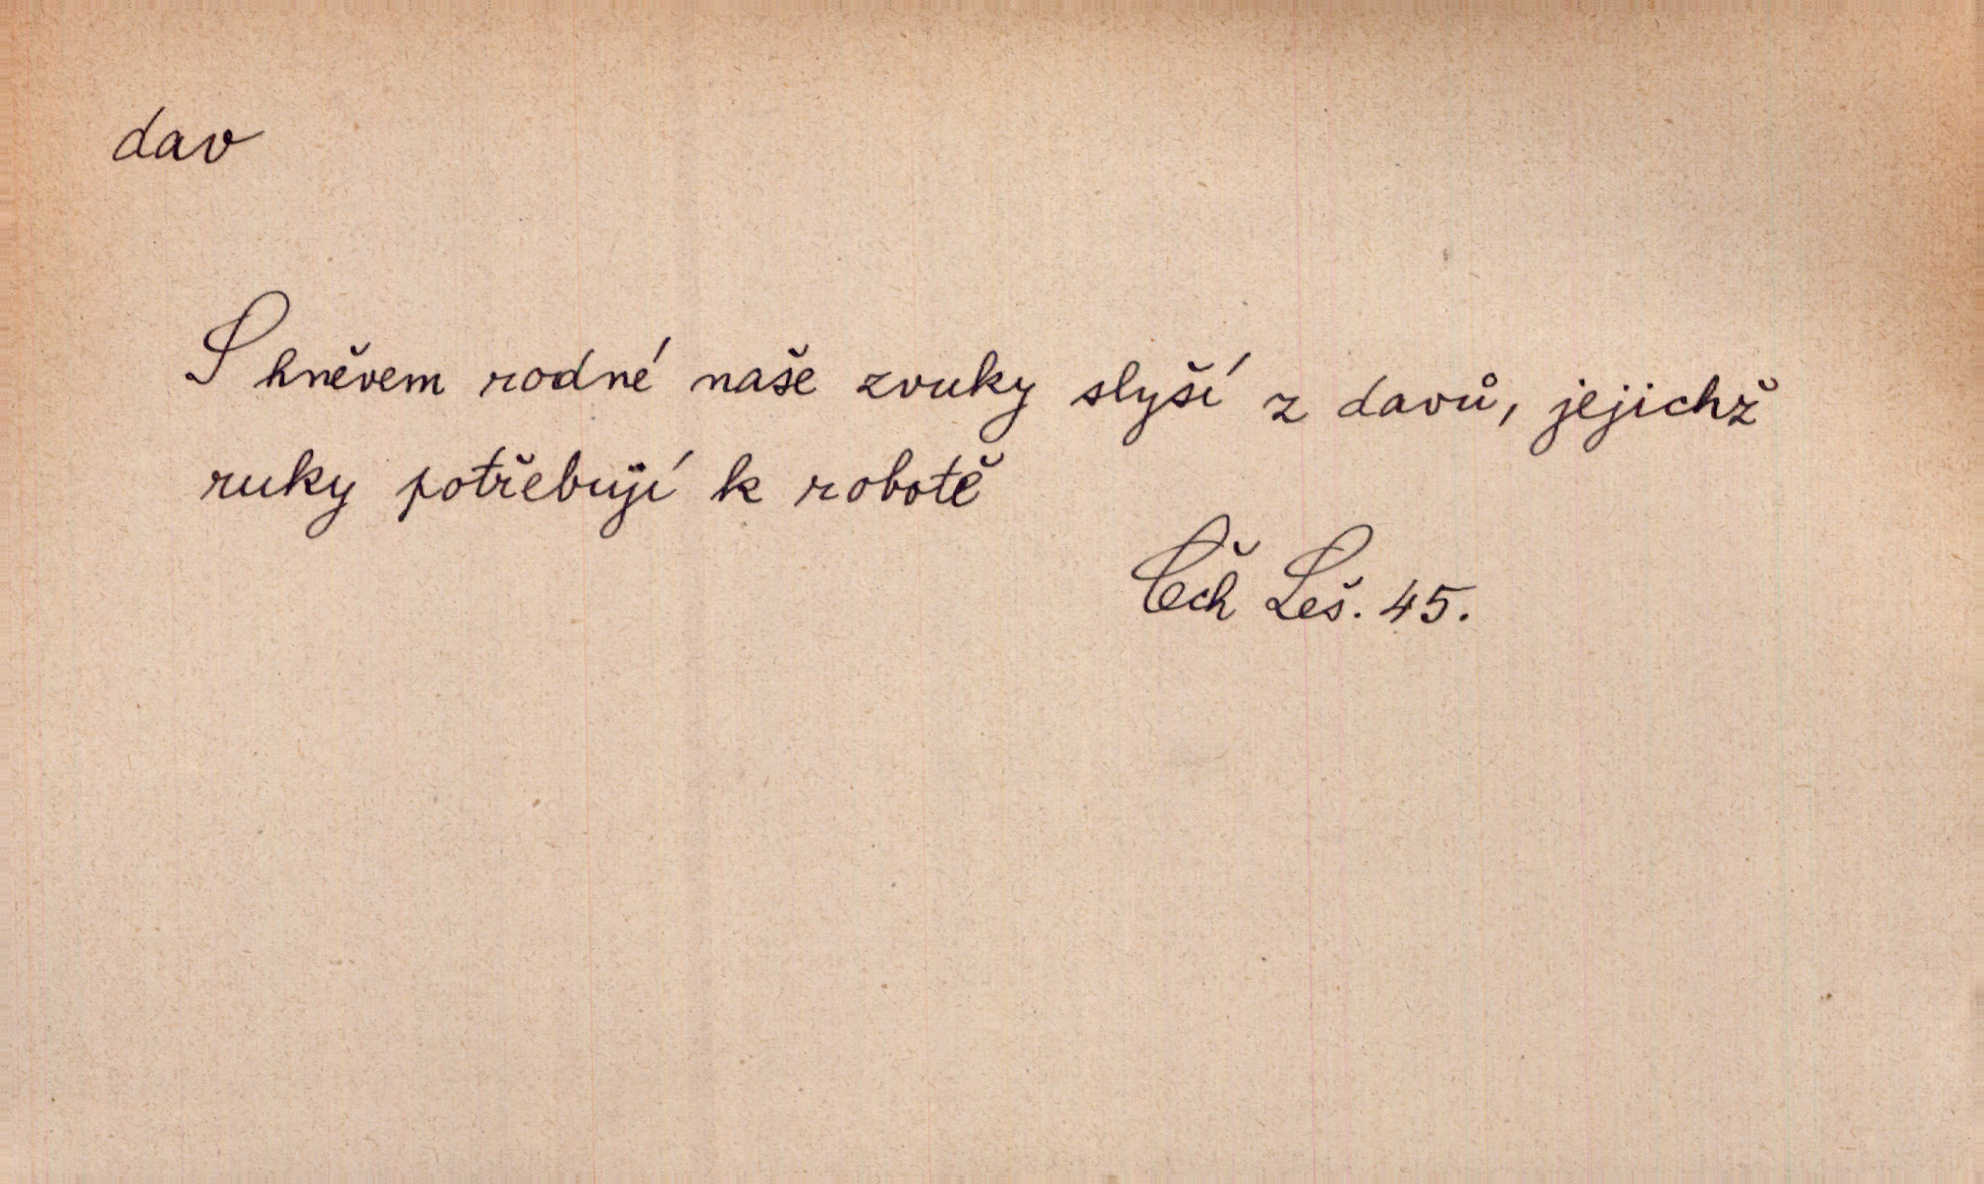 dav
S hněvem rodné naše zvuky slyší z davů, jejichž
ruky potřebují k robotě
Čech Leš. 45.